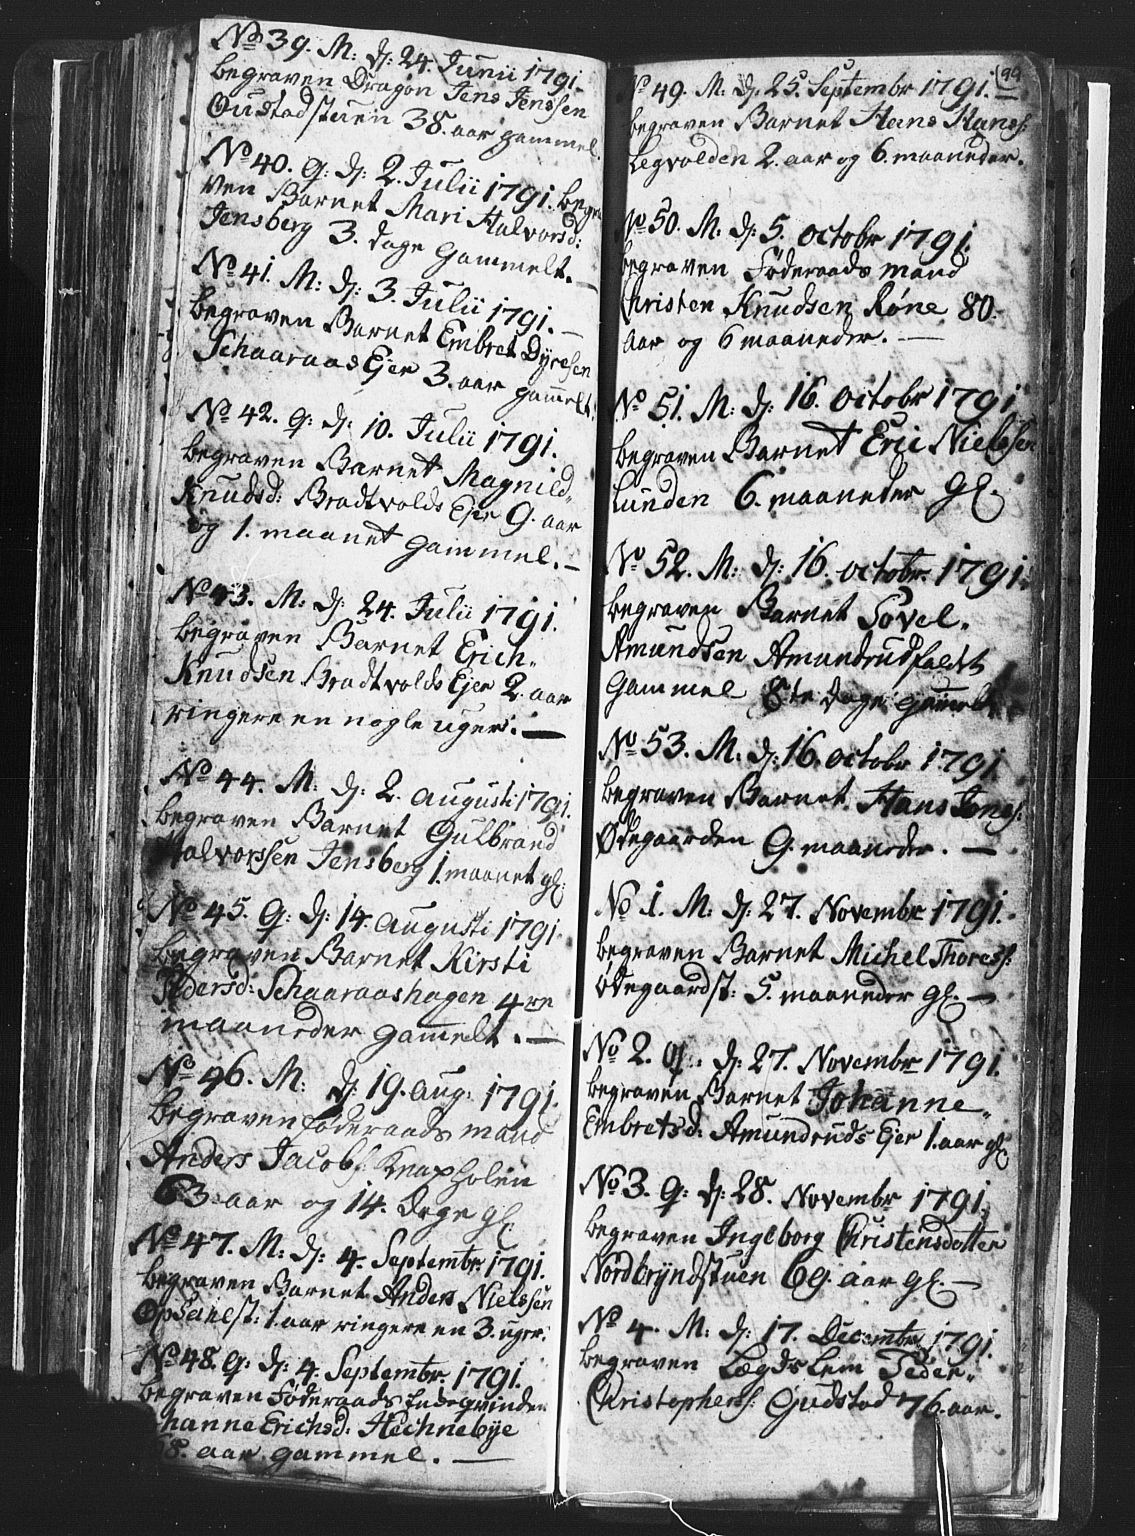 No 39. M: d: 24. Junii 1791.
begraven Dragon Jens Jenssen
Oustadstuen 38. aar gammel.
No 40. Q: d: 2. Julii 1791. begra
ven Barnet Mari Halvorsd:
Jensberg 3. dage gammelt. —
No 41. M: d: 3. Julii 1791. —
begraven Barnet Embret Dyresen
Schaaraas Ejer 3. aar gam̅elt.
No 42. Q: d: 10. Julii 1791.
begraven Barnet Magnild„
Knudsd: Bradtvolds Ejer 9. aar
og 1. maanet gammel. —
No 43. M: d: 24. Julii 1791.
begraven Barnet Erich„
Knudsen Bradtvolds Ejer 2. aar
ringere en nogle uger. —
No 44. M: d: 2. Augusti 1791.
begraven Barnet Gulbrand
Halvorssen Jensberg 1. maanet gl:
No 45. Q: d: 14. Augusti 1791.
begraven Barnet Kirsti
Pedersd: Schaaraashagen 4re
maaneder gam̅elt. —
No 46. M: d: 19. Aug: 1791.
begraven Føderaads mand
Anders Jacobs: Knapholen
63 aar og 14. Dage gl:
No 47. M: d: 4. Septembr. 1791.
begraven Barnet Anders Nielssen
Opsahlst: 1. aar ringere en 3. uger.
No 48. Q: d: 4. Septembr. 1791.
begraven Føderaads Enkeqvinden
hanne Erichsd: Hechnebye
8. aar gammel. —
99
No 49. M. d: 25. Septembr 1791. —
begraven Barnet Hans Hanss:
Legvolden 2. aar og 6. maaneder.
No 50. M. d: 5. octobr 1791.
begraven Føderaads mand
Christen Knudsen Røne 80.
aar og 6 maaneder. —
No 51. M: d: 16. octobr 1791
begraven Barnet Eric Nielssen
Lunden 6. maaneder gl.
No 52. M: d: 16. octobr. 1791.
begraven Barnet Povel„
Amundsen Amundrudfaldt
gammel 8te dage gam̅elt
No 53. M. d: 16. octobr 1791
begraven Barnet Hans Jenss:
Ødegaarden 9. maaneder. —
No 1. M. d: 27. Novembr 1791.
begraven Barnet Michel Thoress:
Ødegaardst: 5. maaneder gl. —
No 2. Q: d: 27. Novembr 1791.
begraven Barnet Johanne„
Embretsd: Amundruds Ejer 1. aar gl
No 3. Q: d: 28. Novembr 1791.
begraven Ingeborg Christensdotter
Nordbryndstuen 69. aar gl. —
No 4. M: d: 17. Decembr 1791.
begraven Lægds Lem Peder„
Christophers: Gudstad 76. aar.